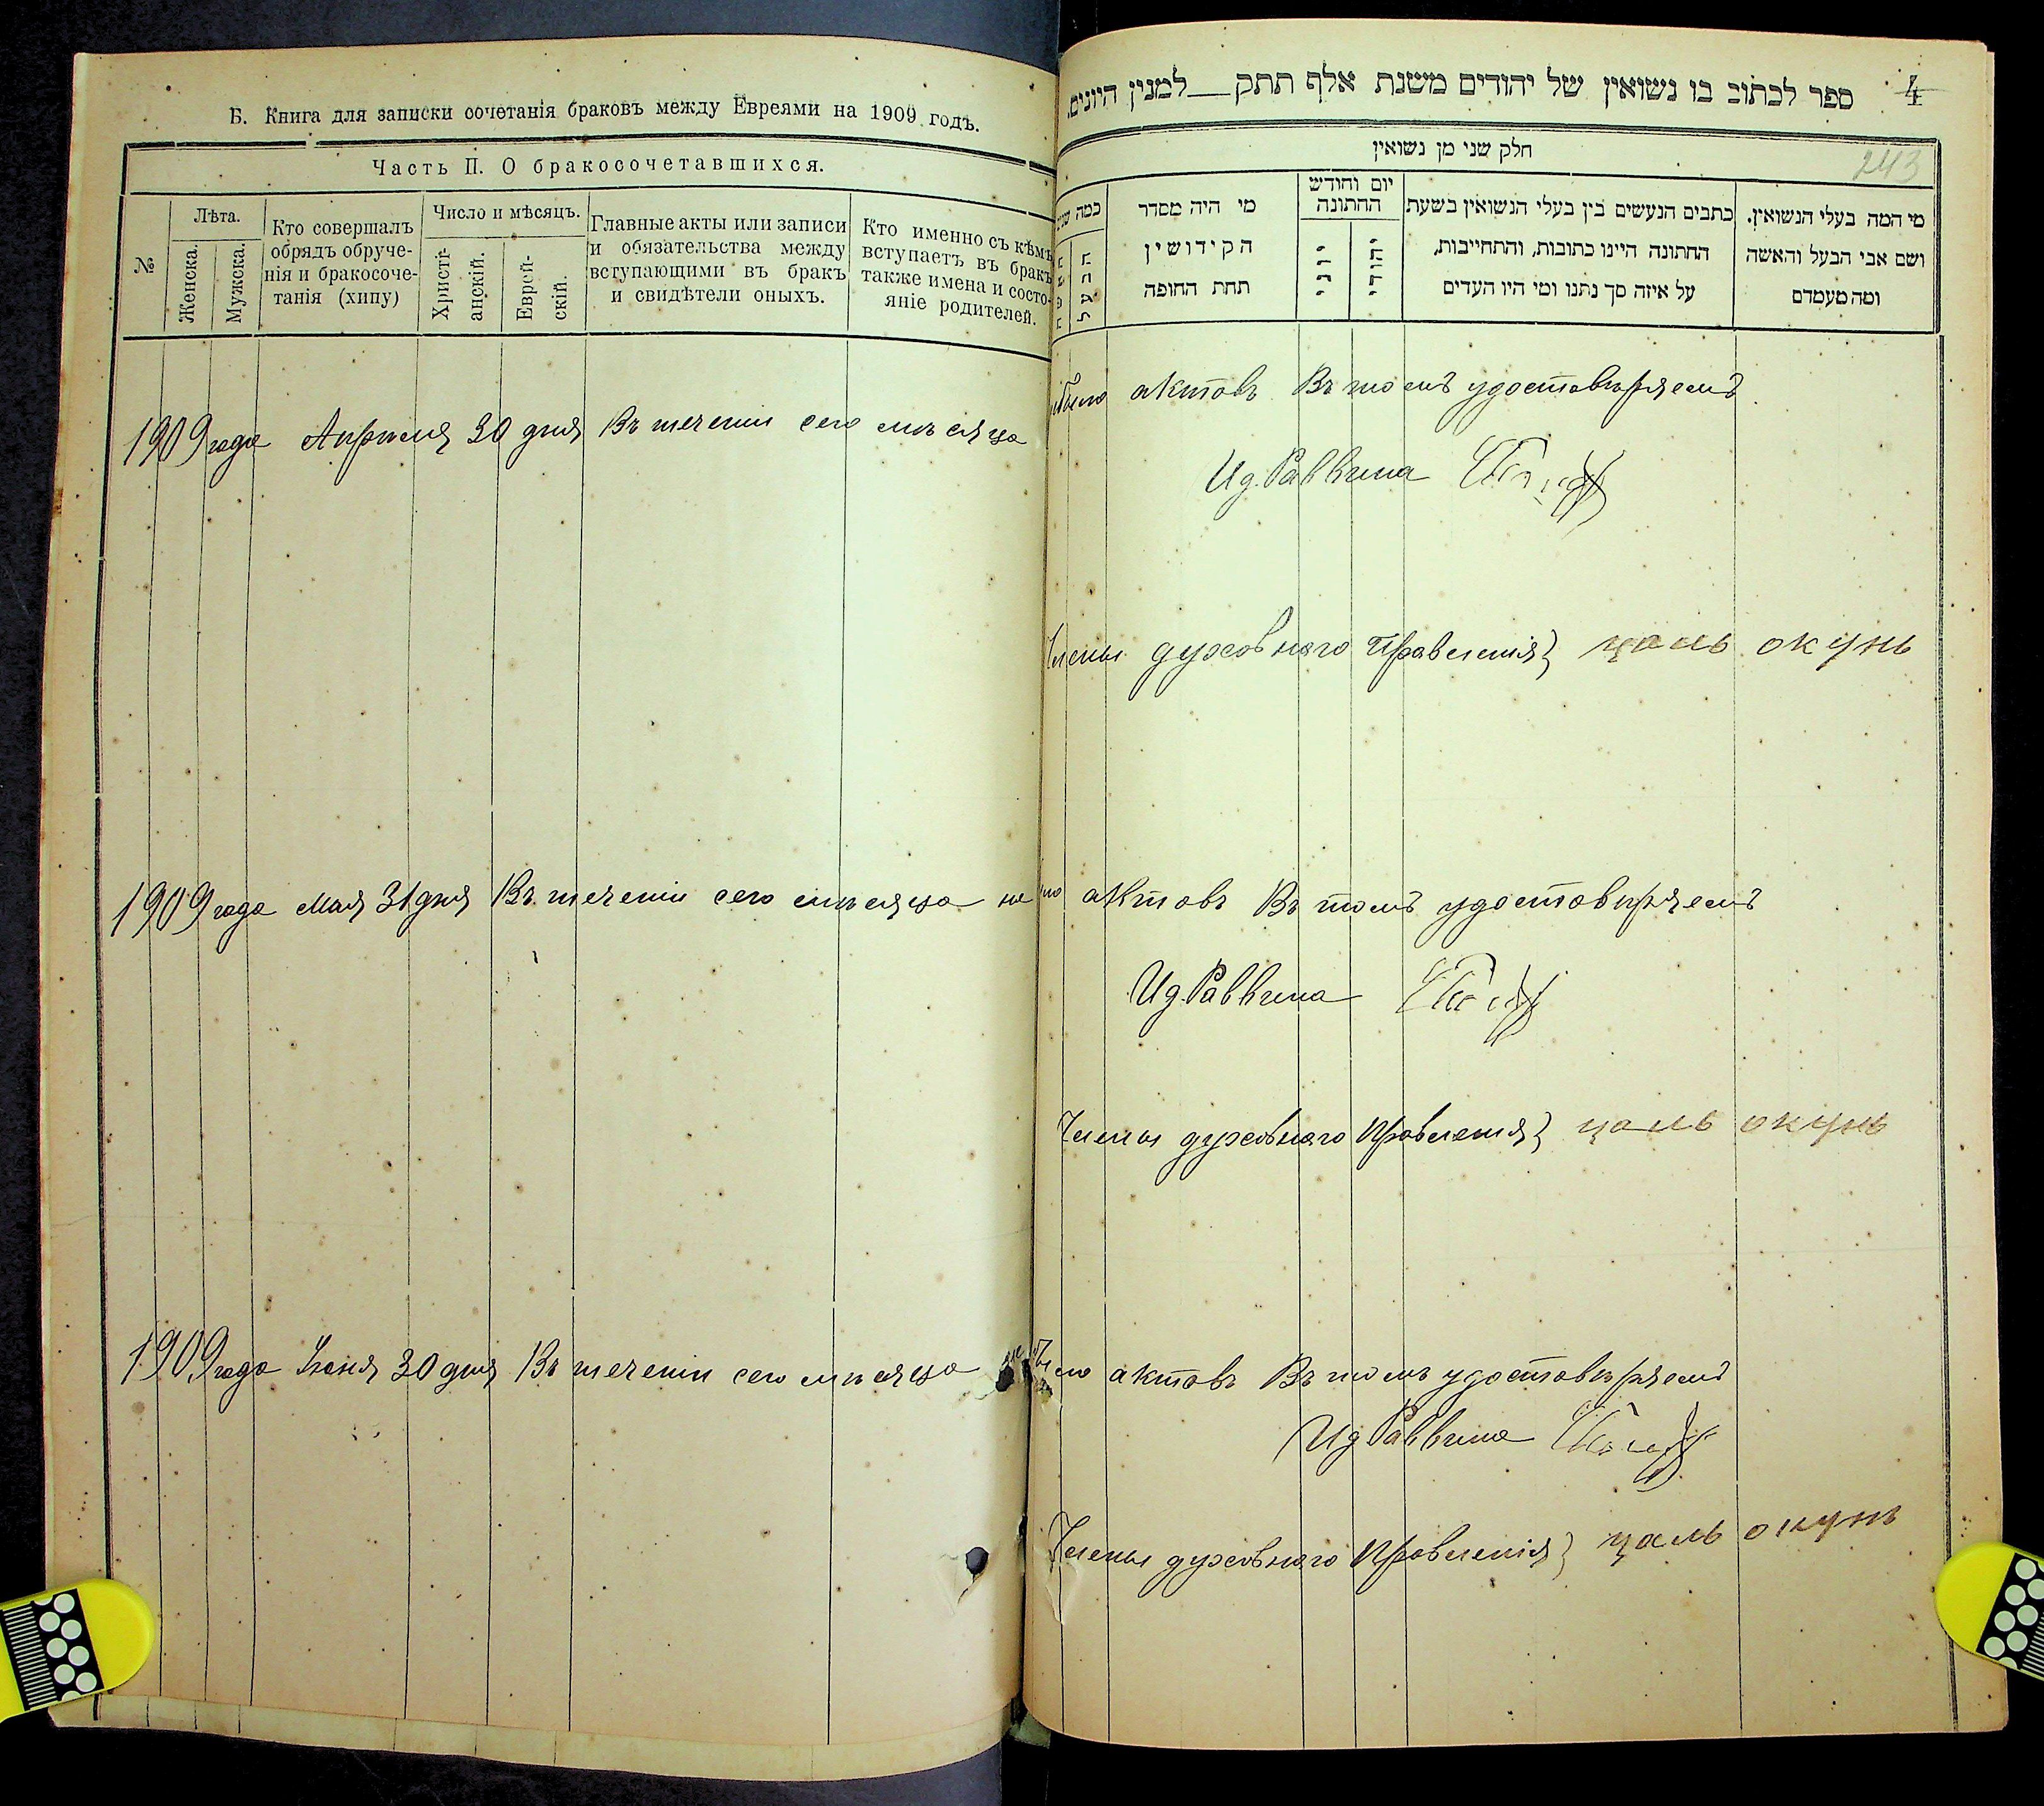 Б. Книга для записки сочетанія браковъ между Евреями на 1909 годъ.
Часть II. О бракосочетавшихся.
№
Лѣта.
Женска.
Мужска.
Кто совершалъ
обрядъ обруче-
нія и бракосоче-
танія (хипу)
Число и мѣсяцъ.
Христі-
анскій.
Еврей-
скій.
Главные акты или записи
и обязательства между
вступающими въ бракъ
и свидѣтели оныхъ.
Кто именно съ кѣмъ
вступаетъ въ бракъ
также имена и состо-
яніе родителей.
1909 года Апрѣля 30 дня Въ теченіи сего мѣсяца
1909 года Мая 31 дня Въ теченіи сего мѣсяца не
1909 года Іюня 30 дня Въ теченіи сего мѣсяца не
4
ספר לכתוב בו נשואין של יהודים משנת אלף תתק__למנין היונים.
243
חלק שני מן נשואין
מי המה בעלי הנשואין.
ושם אבי הבעל והאשה
ומה מעמדם
כתבים הנעשים בין בעלי הנשואין בשעת
החתונה היינו כתובות, והתחייבות,
על איזה סך נתנו ומי היו העדים
יום וחודש
החתונה
יהודי
יוני
מי היה מסדר
הקידושין
תחת החופה
כמה שנים
הבעל
האשה
было актовъ Въ томъ удостовѣряемъ
Ид. Раввина
Члены духовнаго правленія} цаль окунь
было актовъ Въ томъ удостовѣряемъ
Ид. Раввина
Члены духовнаго правленія} цаль окунь
было актовъ Въ томъ удостовѣряемъ
Ид. Раввина
Члены духовнаго правленія} цаль окунь